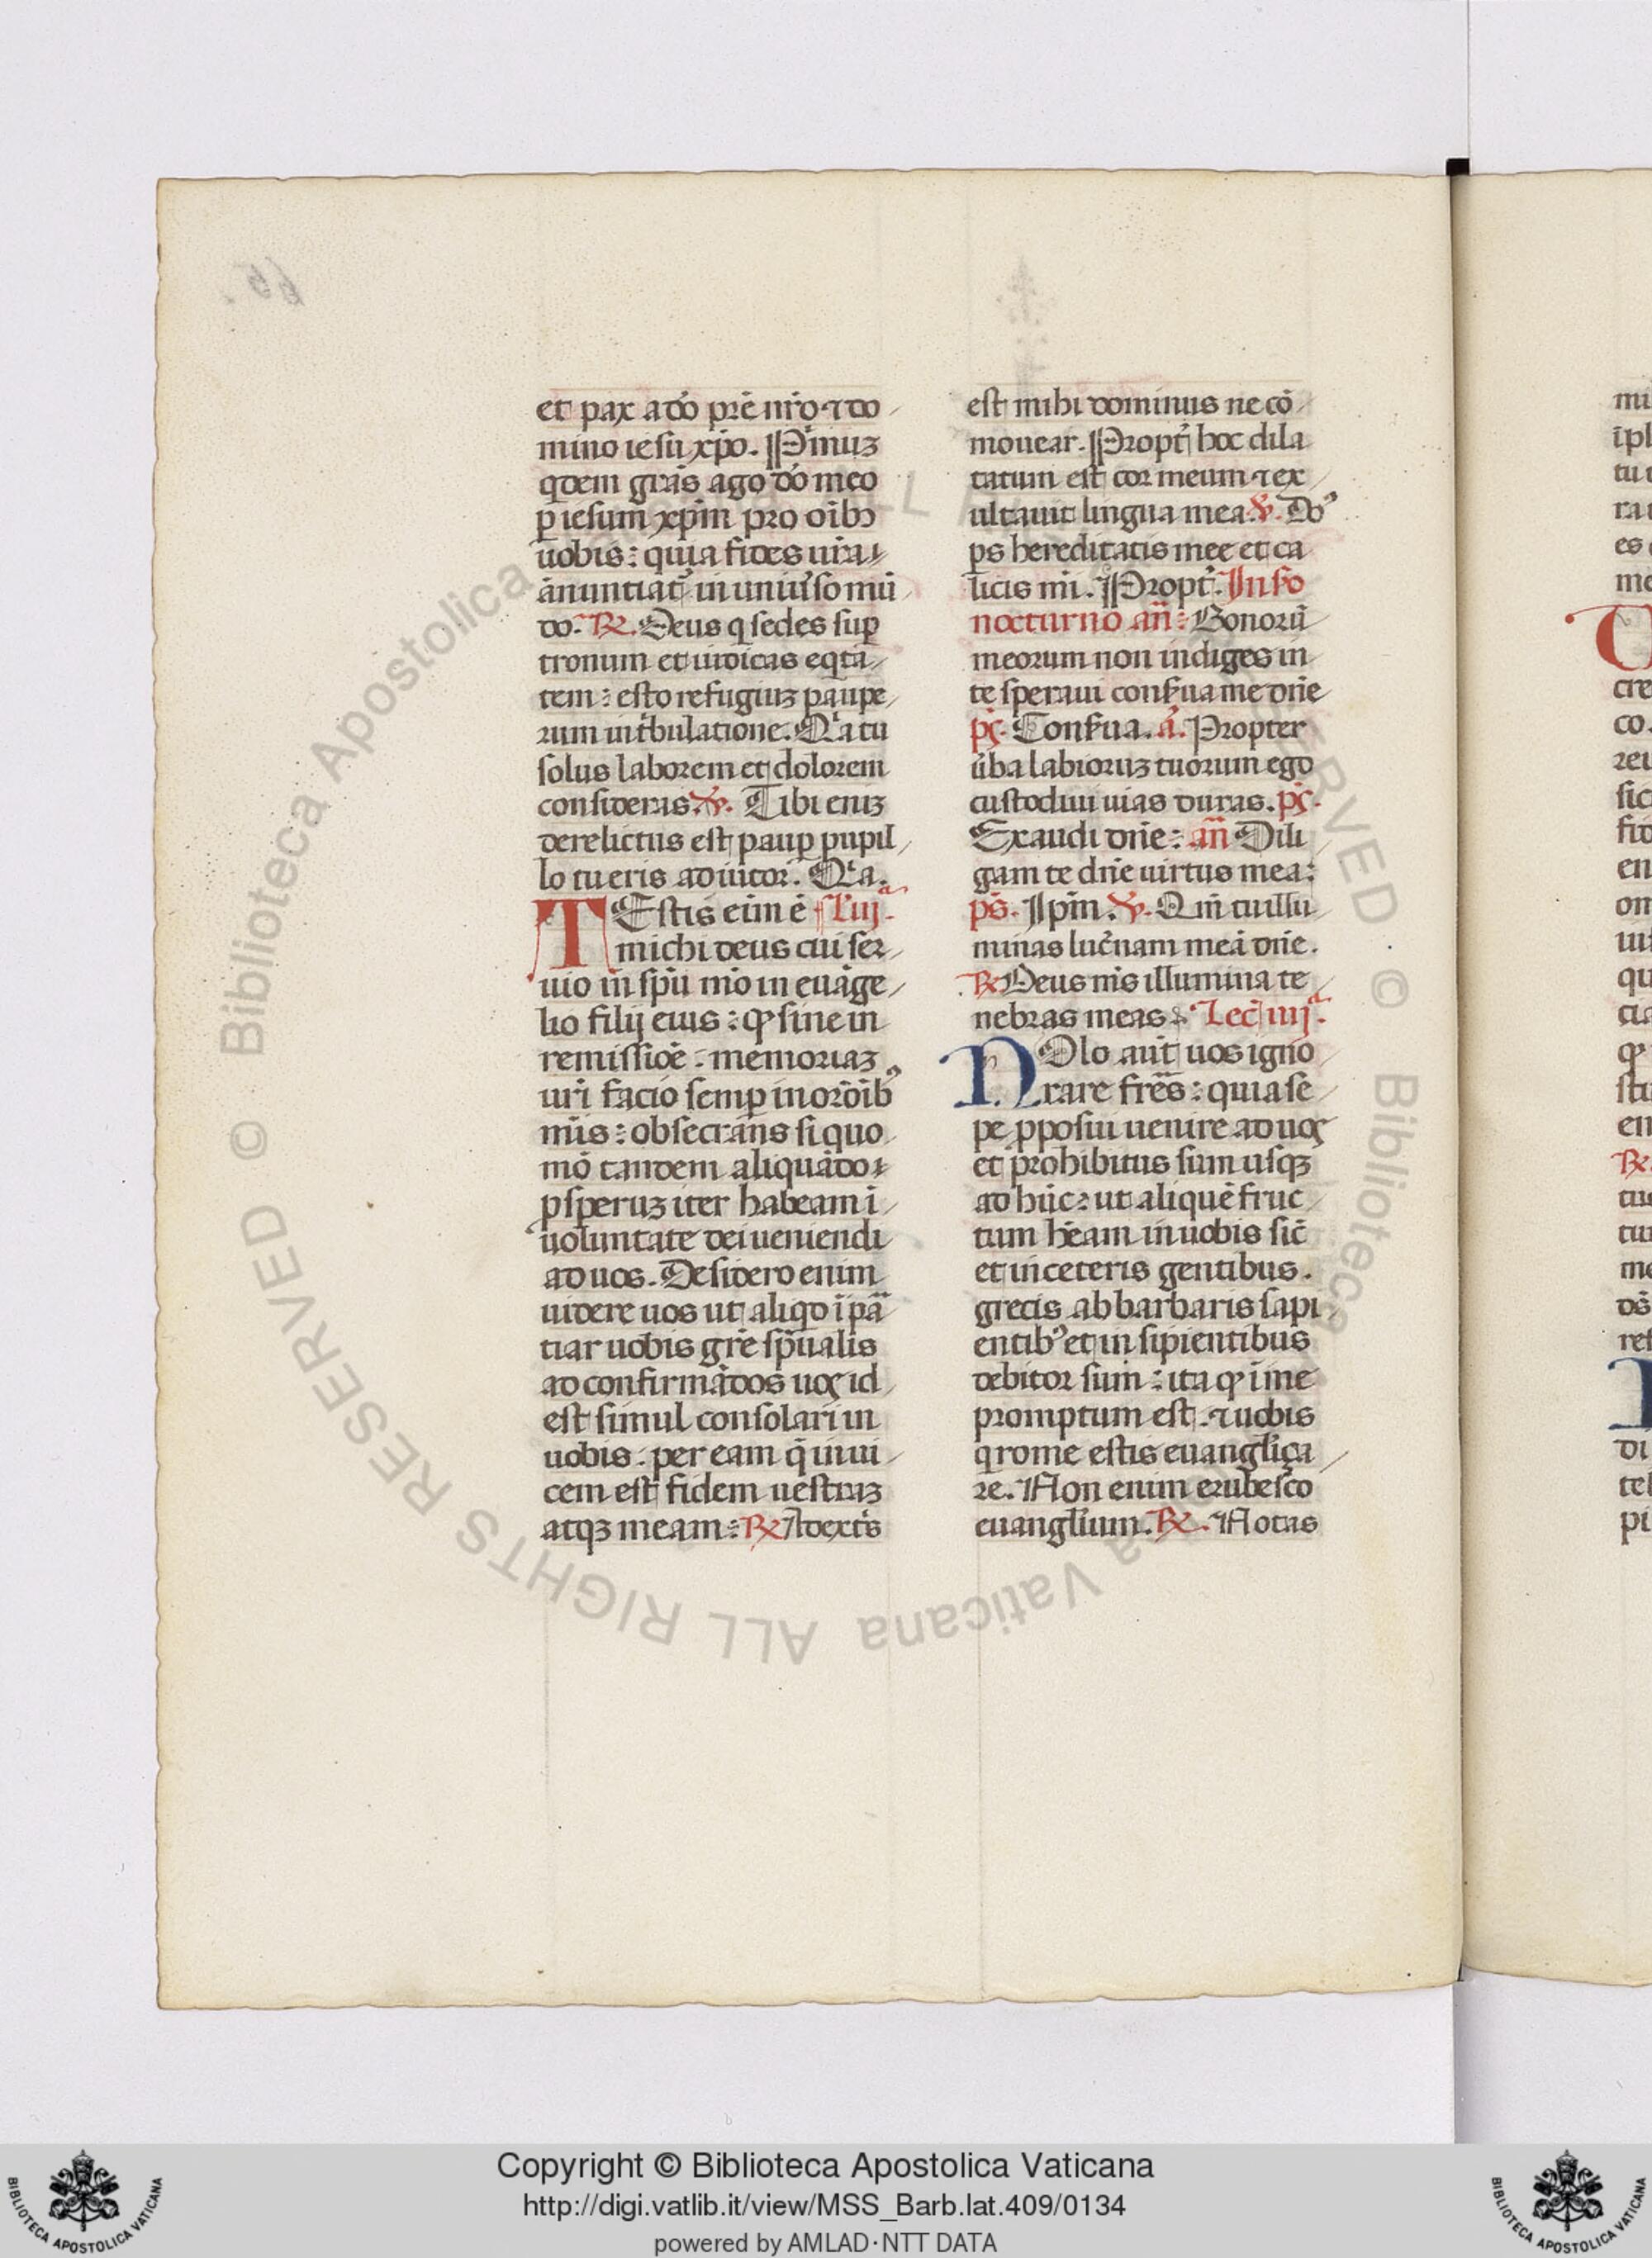 et pax a dō pr̄e nr̄o ⁊ do
mino iesu xp̄o. Pͥmuʒ
qdem gr̄as ago dō meo
ꝑ iesum xp̄m pro oīb
uobis: quia fides ur̄a
ānuntiat᷑ in uniu͛so mū
do. ℞. Deus q sedes suꝑ
tronum et iudicas eqta
tem: esto refugiuʒ paupe
rum in tͥbulatione. Qͥa tu
solus laborem et dolorem
consideras. ℣. Tibi eniʒ
derelictus est pauꝑ pupil
lo tu eris adiutor. Qͥa.
TEstis eīm ē l' iijᵃ.
michi deus cui ser
uio in sp̄u mō in euāge
lio filij eius: ꝙ sine in
remissiōe memoriaʒ
ur̄i facio semꝑ in orōīb'
mīs: obsecrāns si quo
mō tandem aliquādo
ꝓsperuʒ iter habeam ī
uoluntate dei ueniendi
ad uos. Desidero enim
uidere uos ut aliqd īpā
tiar uobis gr̄e sp̄ualis
ad confirmādos uos id
est simul consolari in
uobis: per eam q̄ inui
cem est fidem uestraʒ
atqʒ meam: ℞ A dextͥs
est mihi dominus ne cō
mouear. Propt͛ hoc dila
tatum est cor meum ⁊ ex
ultauit lingua mea. ℣. Do'
ps hereditatis mee et ca
licis mī. Propt͛. In sō
nocturno an̄: Bonorū
meorum non indiges in
te speraui conẜua me dn̄e
ps. Conẜua. a. Propter
u͛ba labioruʒ tuorum ego
custodiui uias duras. ps.
Exaudi dn̄e: an̄ Dili
gam te dn̄e uirtus mea:
ps. Ip̄m. ℣. Qm̄ tu illu
minas luc͛nam meā dn̄e.
℞ Deus ms illumina te
nebras meas. Lec̄ iiijᵃ.
NOlo aut̄ uos igno
rare fr̄es: quia se
pe ꝓposui uenire ad uos
et prohibitus sum usqʒ
ad hūc: ut aliquē fruc
tum hēam in uobis sic̄
et in ceteris gentibus.
grecis ab barbaris sapi
entib' et in sipientibus
debitor sum: ita ꝙ ī me
promptum est. ⁊ uobis
q rome estis euangliça
re. Non enim erubesco
euanglium. ℞. Notas
Copyright © Biblioteca Apostolica Vaticana
http://digi.vatlib.it/view/MSS_Barb.lat.409/0134
powered by AMLAD·NTT DATA
BIBLIOTECA APOSTOLICA VATICANA
BIBLIOTECA APOSTOLICA VATICANA